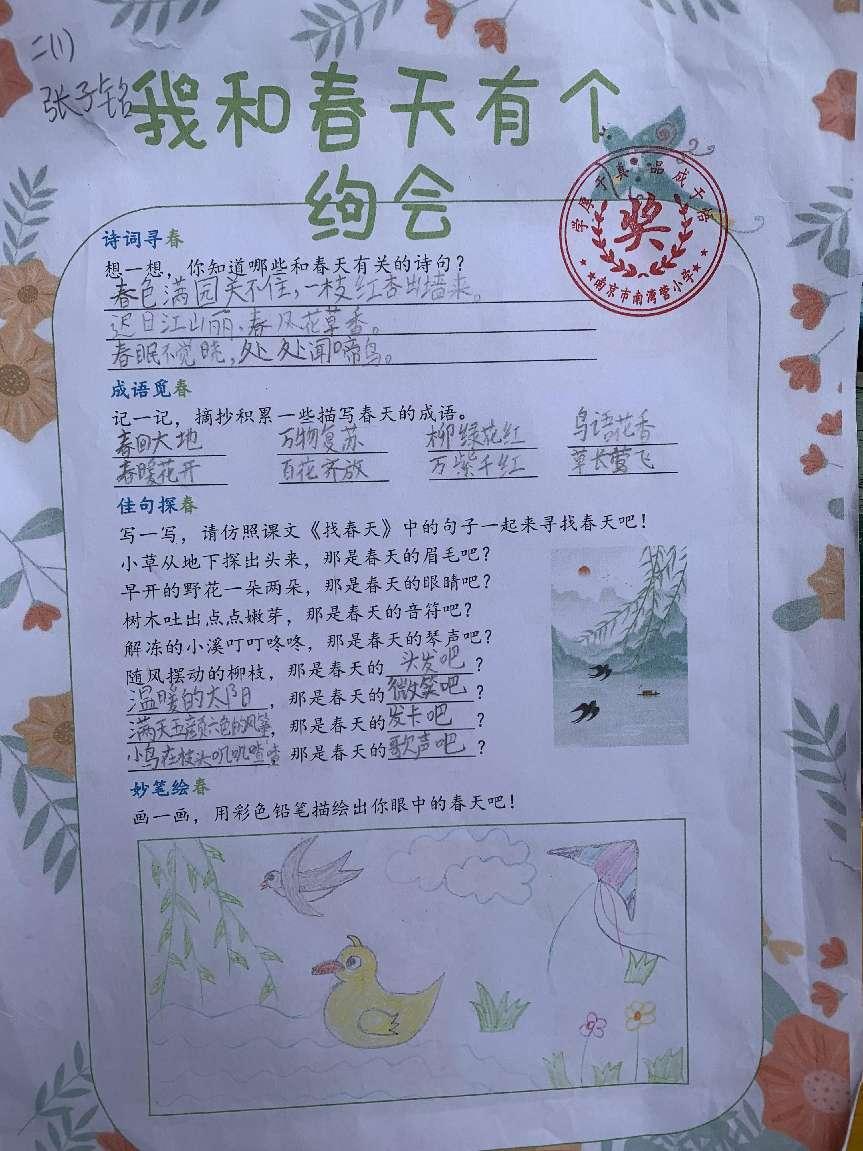 二(1)
张子铭
我和春天有个
绚会
学厚于真·品成于善
奖
南京市南湾营小学
诗词寻春
想一想，你知道哪些和春天有关的诗句？
春色满园关不住，一枝红杏出墙来。
迟日江山丽，春风花草香。
春眠不觉晓，处处闻啼鸟。
成语觅春
记一记，摘抄积累一些描写春天的成语。
春回大地 万物复苏 柳绿花红 鸟语花香
春暖花开 百花齐放 万紫千红 草长莺飞
佳句探春
写一写，请仿照课文《找春天》中的句子一起来寻找春天吧！
小草从地下探出头来，那是春天的眉毛吧？
早开的野花一朵两朵，那是春天的眼睛吧？
树木吐出点点嫩芽，那是春天的音符吧？
解冻的小溪叮叮咚咚，那是春天的琴声吧？
随风摆动的柳枝，那是春天的头发吧？
温暖的太阳，那是春天的微笑吧？
满天五颜六色的风筝，那是春天的发卡吧？
小鸟在枝头叽叽喳喳 那是春天的歌声吧？
妙笔绘春
画一画，用彩色铅笔描绘出你眼中的春天吧！